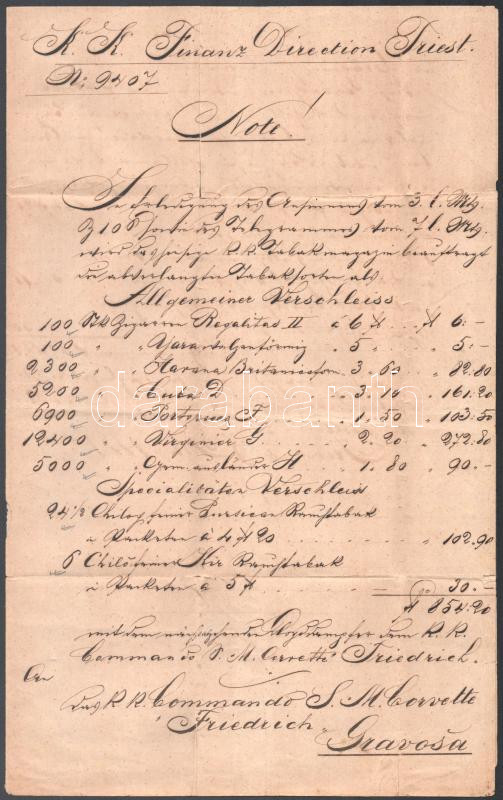 K. K. Finanz Direction Triest.
N: 9407
Note!
In Erledigung des Ansinnens vom 3. l. Mts.
Z 106 sowie des Telegrammes vom 7 l. Mts.
wird das hiesige k. k. Tabakmagazin beauftragt
die abverlangten Tabaksorten als.
Allgemeiner Verschleiss
100 Stk Zigarren Regalitas II à 6 f . . . f 6: –
100 " " Yara 5 " . . " 5: –
2300 " " Havana Britanica 3. 60 . . " 82. 80
5200 " " Cuba D . . . . 3. 10 . . " 161. 20
6900 " " Portorico F . . . 1. 50 . . " 103. 50
12400 " " Virginier G . . . 2. 20 . . " 272. 80
5000 " " Gem. Ausländer H . . 1. 80 . . " 90. –
Specialitäten Verschleiss
24 1/2 feiner Rauchtabak
in Packeten à 4 f 20 . . . . . " 102. 90
6 Rauchtabak
in Packeten à 5 f . . . . . 30. –
f 854. 20
mit dem Lloyddampfer dem k. k.
Commando S. M. Corvette "Friedrich.
An
das k. k. Commando S. M. Corvette
"Friedrich"
Gravosa
darabanth